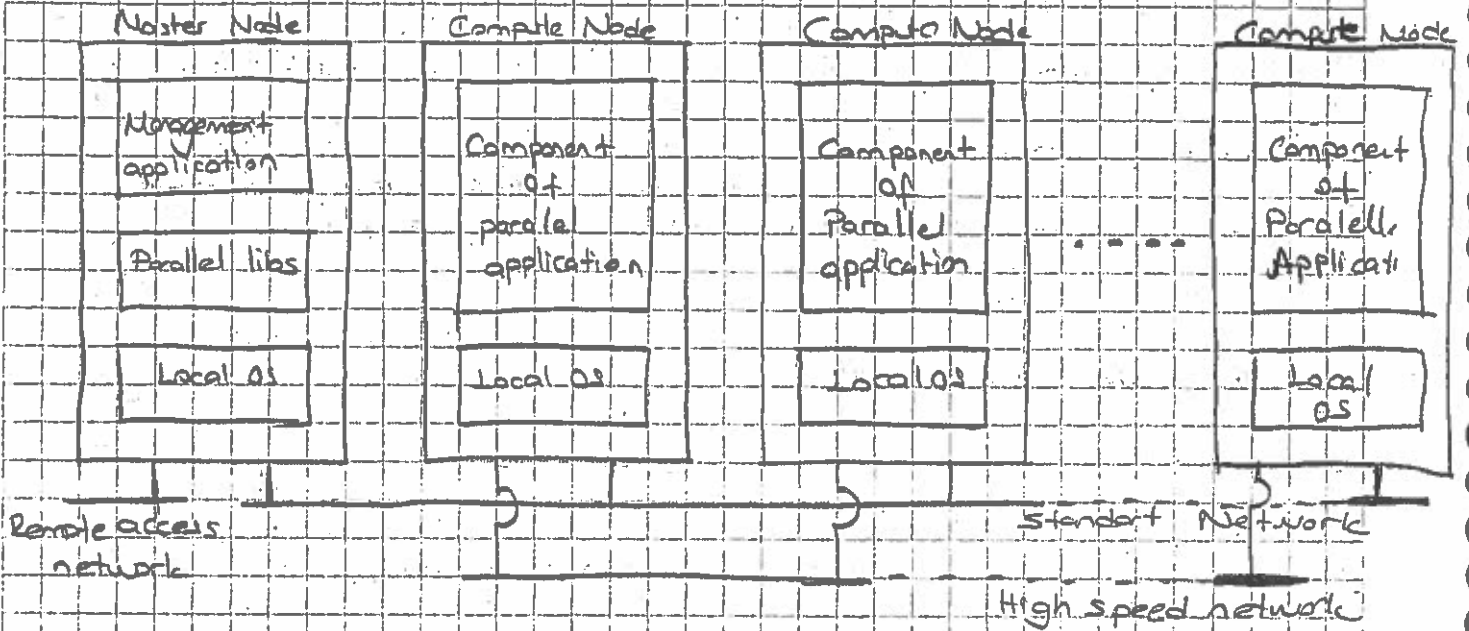 Master Node
Management
application
Parallel libs
Local OS
Compute Node
Component
of
paralel
application
Local OS
Compute Node
Component
of
Parallel
application
Local OS
Compute Node
Component
of
Paralell
Applicati
Local
OS
Remote access
network
Standart Network
High speed network